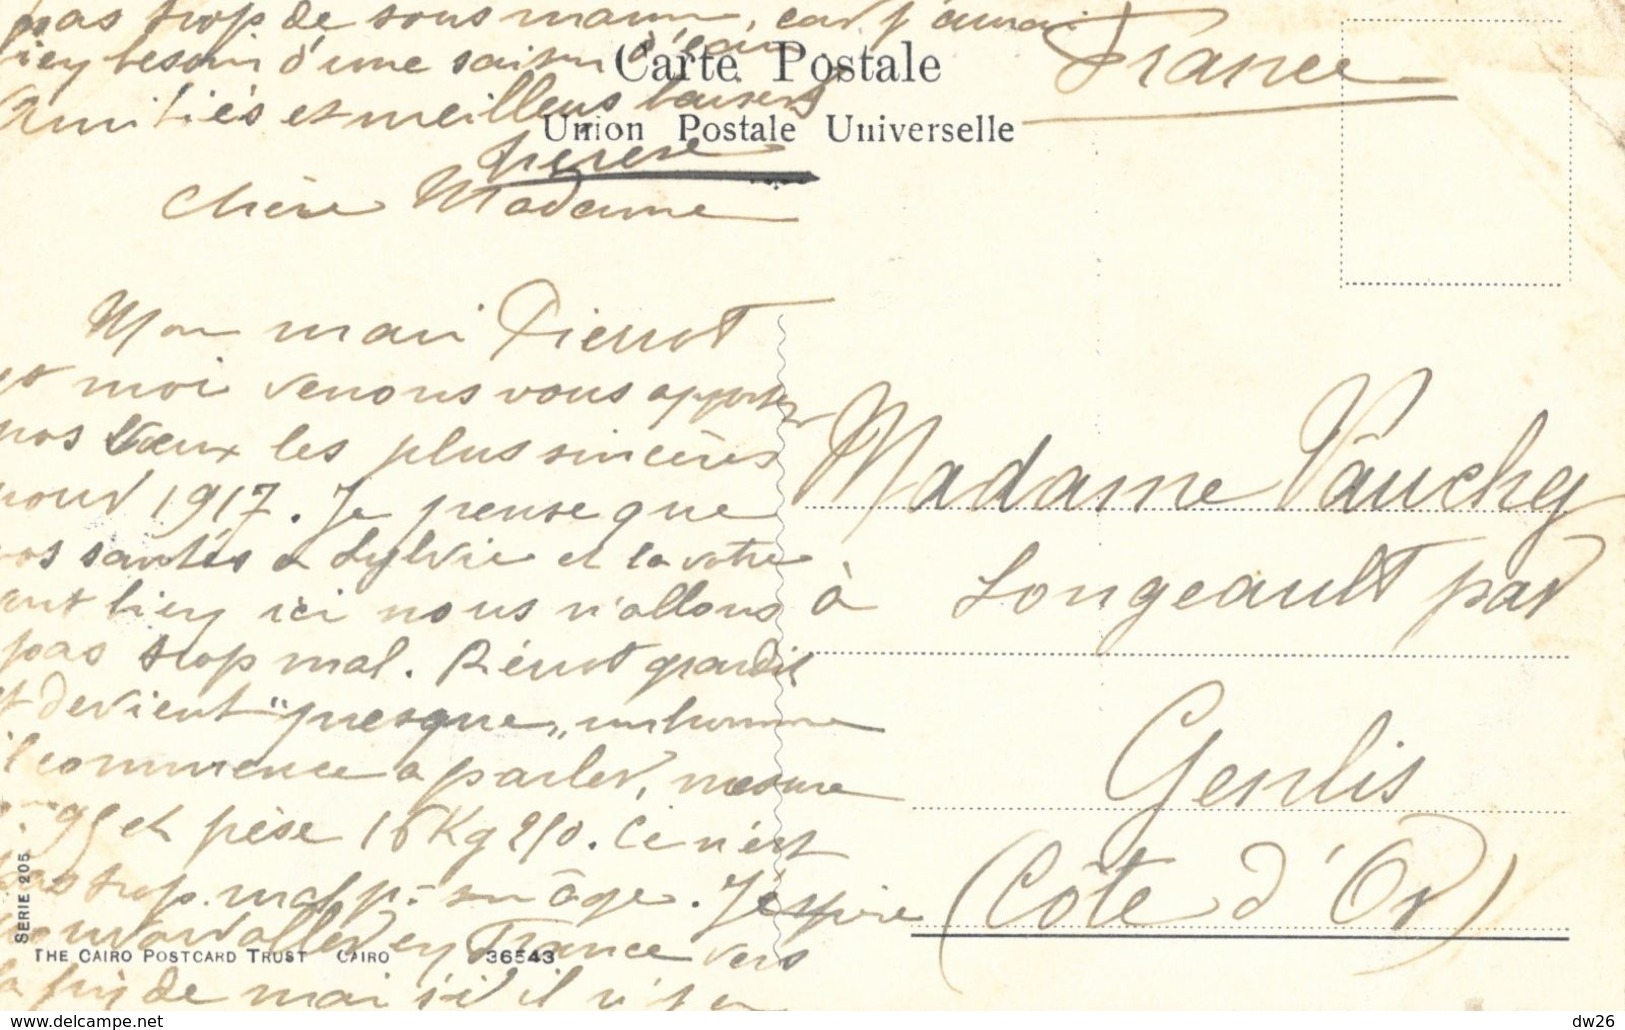 pas trop de sous marins, car j'aurai
bien besoin d'une saison d'eau
Amitiés et meilleurs baisers
France
Carte Postale
Union Postale Universelle
Chère Madame
Mon mari Pierrot
et moi venons vous apporter
nos voeux les plus sincères
pour 1917. Je pense que
vos santés à Sylvie et la votre
vont bien ici nous n'allons
pas trop mal. Piérrot grandit
et devient "presque" un homme
il commence à parler, mesure
95 et pèse 16 Kg 250. Ce n'est
pas trop mal p. son âge. J'éspère
pouvoir aller en France vers
la fin de mai s'il n'y a
Madame Vauchey
à Longeault par
Genlis
(Côte d'Or)
SERIE 205
THE CAIRO POSTCARD TRUST CAIRO 36543
https://www.delcampe.net
dw26